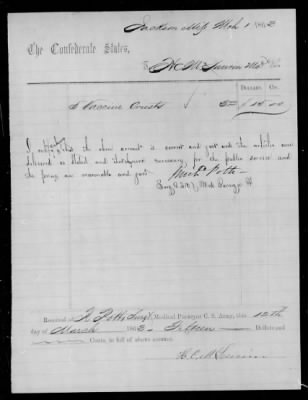 Jackson Miss Mch 1 1863
The Confederate States,
To H. C. McLaurin Dr
DOLLARS Cts.
5 Vaccine Crusts 15 00
I certify that the above account is correct and just and the articles were
delivered as stated and that were necessary for the public service and
the prices are reasonable and just.
Surg C.S.A.
Received of R. Potts Surg & Medical Purveyor C. S. Army, this 12th
day of March 1863. Fifteen Dollars and
Cents, in full of above account.
H. C. McLaurin